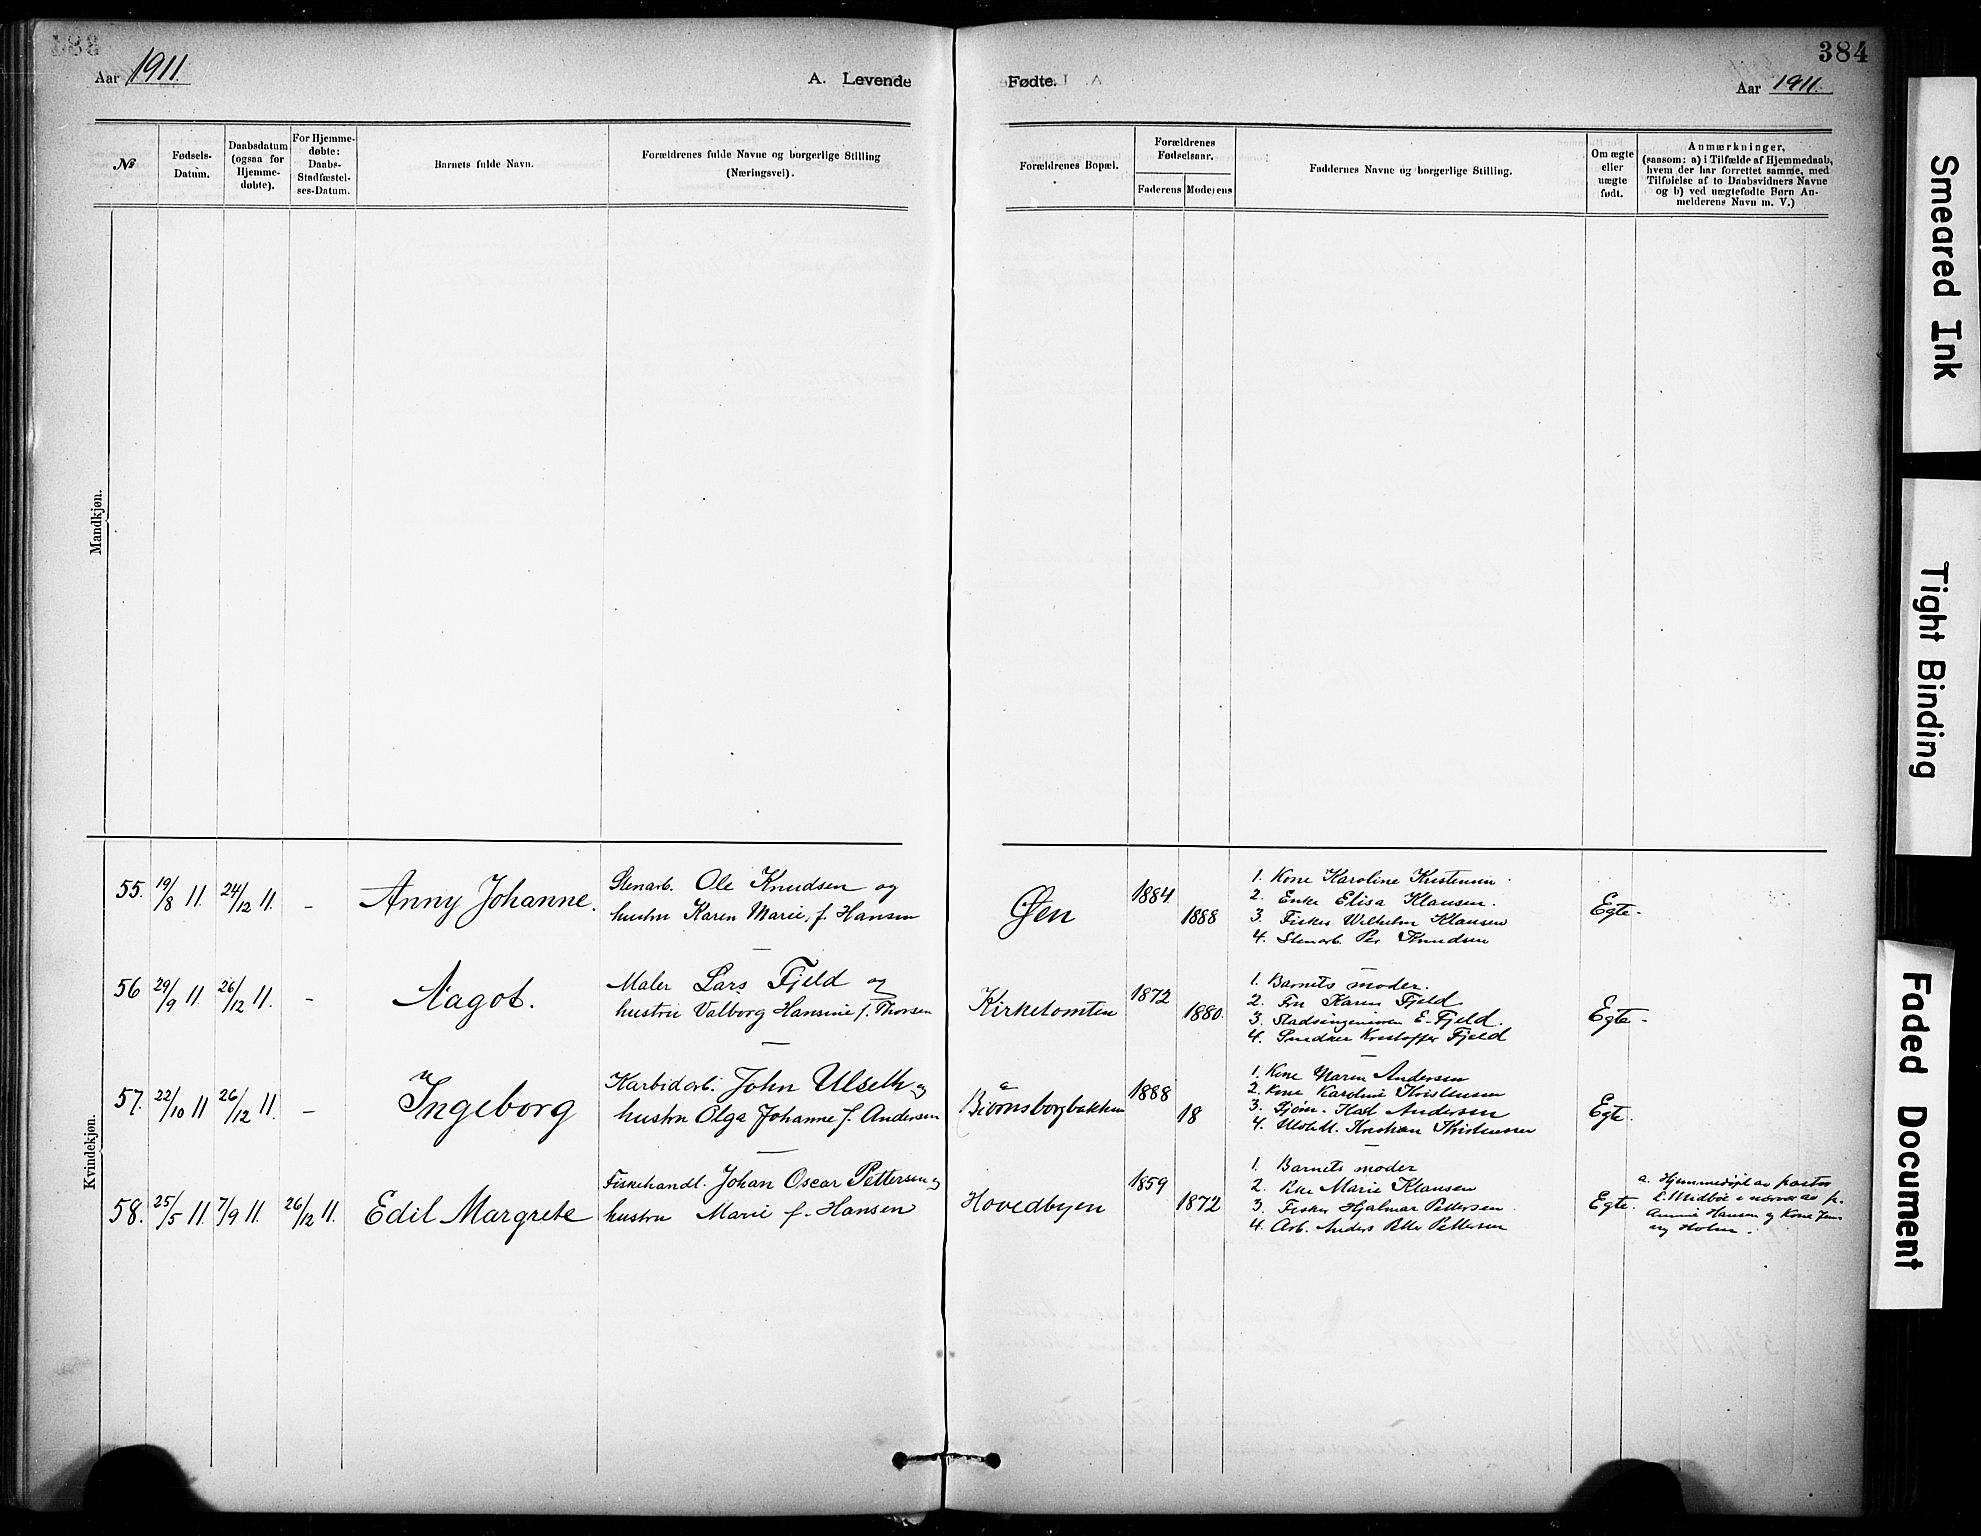 384
Aar 1911.
A. Levende Fødte.
Aar 1911.
№
Fødsels-Datum.
Daabsdatum (ogsaa for Hjemme-døbte).
For Hjemme-døbte: Daabs-Stadfæstel-ses-Datum.
Barnets fulde Navn.
Forældrenes fulde Navne og borgerlige Stilling (Næringsvei).
Forældrenes Bopæl.
Forældrenes Fødselsaar.
Faderens
Moderens
Faddernes Navne og borgerlige Stilling.
Om ægte eller uægte født.
Anmærkninger, (saasom: a) i Tilfælde af Hjemmedaab, hvem der har forrettet samme, med Tilføielse af to Daabsvidners Navne og b) ved uægtefødte Børn An-melderens Navn m. V.)
Mandkjøn.
Kvindekjøn.
55. 19/8 11. 24/12 11. – Anny Johanne.
Stenarb. Ole Knudsen og
hustru Karen Marie, f. Hansen
Øen 1884 1888
1. Kone Karoline Kristensen
2. Enke Elisa Klausen.
3. Fisker Wilhelm Klausen
4. Stenarb. Per Knudsen
Egte.
56 29/9 11. 26/12 11. – Aagot.
Maler Lars Fjeld og
hustru Valborg Hansine f. Thorsen
Kirketomten 1872 1880.
1. Barnets moder.
2. Fru Karen Fjeld
3. Stadsingeniøren E. Fjeld.
4. Snedker Kristoffer Fjeld
Egte.
57. 22/10 11 26/12 11. – Ingeborg
Karbidarb. John Ulseth og
hustru Olga Johanne f. Andersen
Bjørnsborgbakken 1888 18
1. Kone Maren Andersen
2. Kone Karoline Kristensen
3. Sjøm. Karl Andersen
4. Kristian Kristensen
Egte.
58. 25/5 11. 7/9 11. 26/12 11. Edil Margrete
Fiskehandl. Johan Oscar Pettersen og
hustru Marie f. Hansen
Hovedbyen 1859 1872
1. Barnets moder
2. Marie Klausen
3. Fisker Hjalmar Pettersen
4. Arb. Anders Petter Pettersen
Egte.
a. Hjemmedøpt av pastor
Midbøe i nærvær av
Hansen og Kone
Holm.
Smeared Ink
Tight Binding
Faded Document